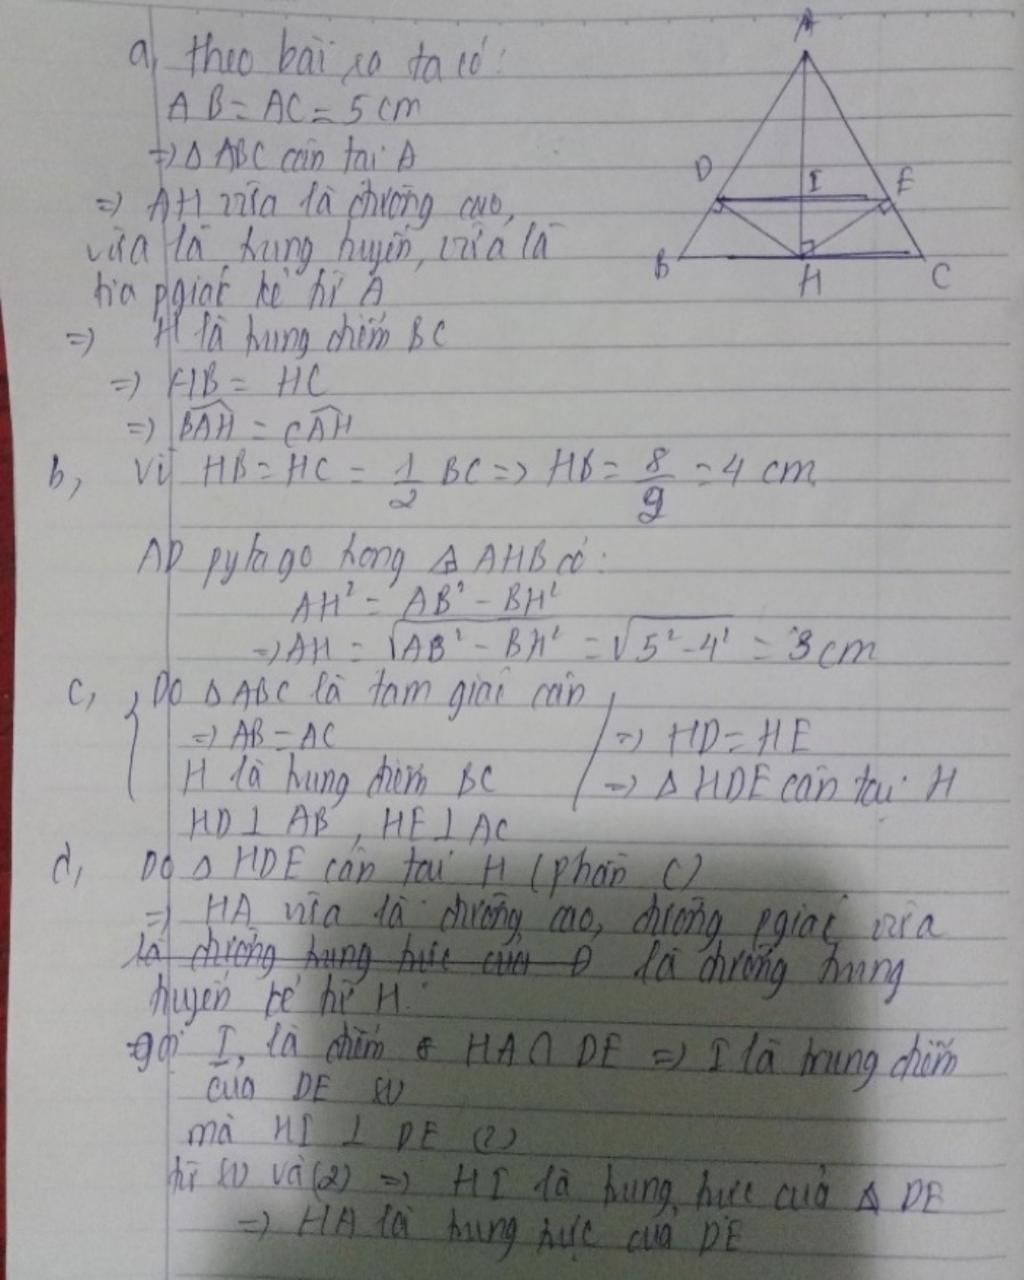 a, theo bài ra ta có:
AB = AC = 5 cm
=> Δ ABC cân tại A
=> AH vừa là đường cao,
vừa là trung tuyến, vừa là
tia pgiác kẻ từ A
=> H là trung điểm BC
=> HB = HC
=> BAH = CAH
A
D
I
E
B
H
C
b, Vì HB = HC = 1/2 BC => HB = 8/2 = 4 cm
AD pytago trong Δ AHB có:
AH² = AB² - BH²
=> AH = √AB² - BH² = √5² - 4² = 3 cm
c, Do Δ ABC là tam giác cân
=> AB = AC
H là trung điểm BC
HD ⊥ AB, HE ⊥ AC
=> HD = HE
=> Δ HDE cân tại H
d, Do Δ HDE cân tại H (phần C)
=> HA vừa là đường cao, đường pgiác vừa
là đường trung trực của D là đường trung
tuyến kẻ từ H.
gọi I, là điểm HA ∩ DE => I là trung điểm
của DE (1)
mà HI ⊥ DE (2)
từ (1) và (2) => HI là trung trực của Δ DE
=> HA là trung trực của DE